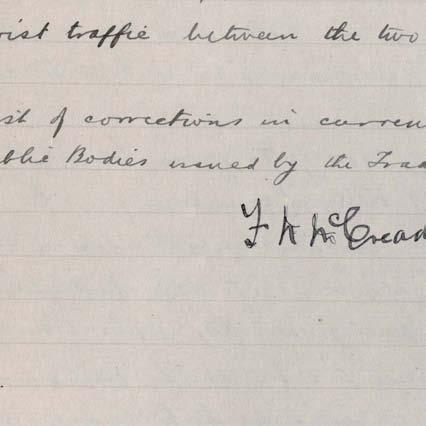 rist traffic between the two
ist of corrections in curren
blic Bodies issued by the Trad
F W McCread